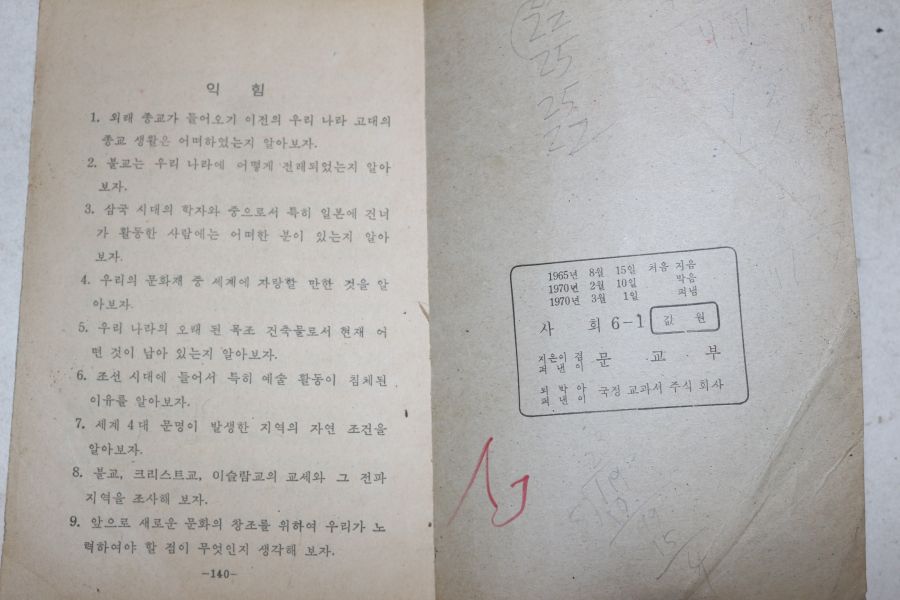 익 힘
1. 외래 종교가 들어오기 이전의 우리 나라 고대의
종교 생활은 어떠하였는지 알아보자.
2. 불교는 우리 나라에 어떻게 전래되었는지 알아
보자.
3. 삼국 시대의 학자와 중으로서 특히 일본에 건너
가 활동한 사람에는 어떠한 분이 있는지 알아
보자.
4. 우리의 문화재 중 세계에 자랑할 만한 것을 알
아보자.
5. 우리 나라의 오래 된 목조 건축물로서 현재 어
떤 것이 남아 있는지 알아보자.
6. 조선 시대에 들어서 특히 예술 활동이 침체된
이유를 알아보자.
7. 세계 4대 문명이 발생한 지역의 자연 조건을
알아보자.
8. 불교, 크리스트교, 이슬람교의 교세와 그 전파
지역을 조사해 보자.
9. 앞으로 새로운 문화의 창조를 위하여 우리가 노
력하여야 할 점이 무엇인지 생각해 보자.
-140-
25
25
22
1965년 8월 15일 처음 지음
1970년 2월 10일 박음
1970년 3월 1일 펴냄
사 회 6-1 값 원
지은이 겸
펴낸이 문 교 부
되박아
펴낸이 국정 교과서 주식 회사
15